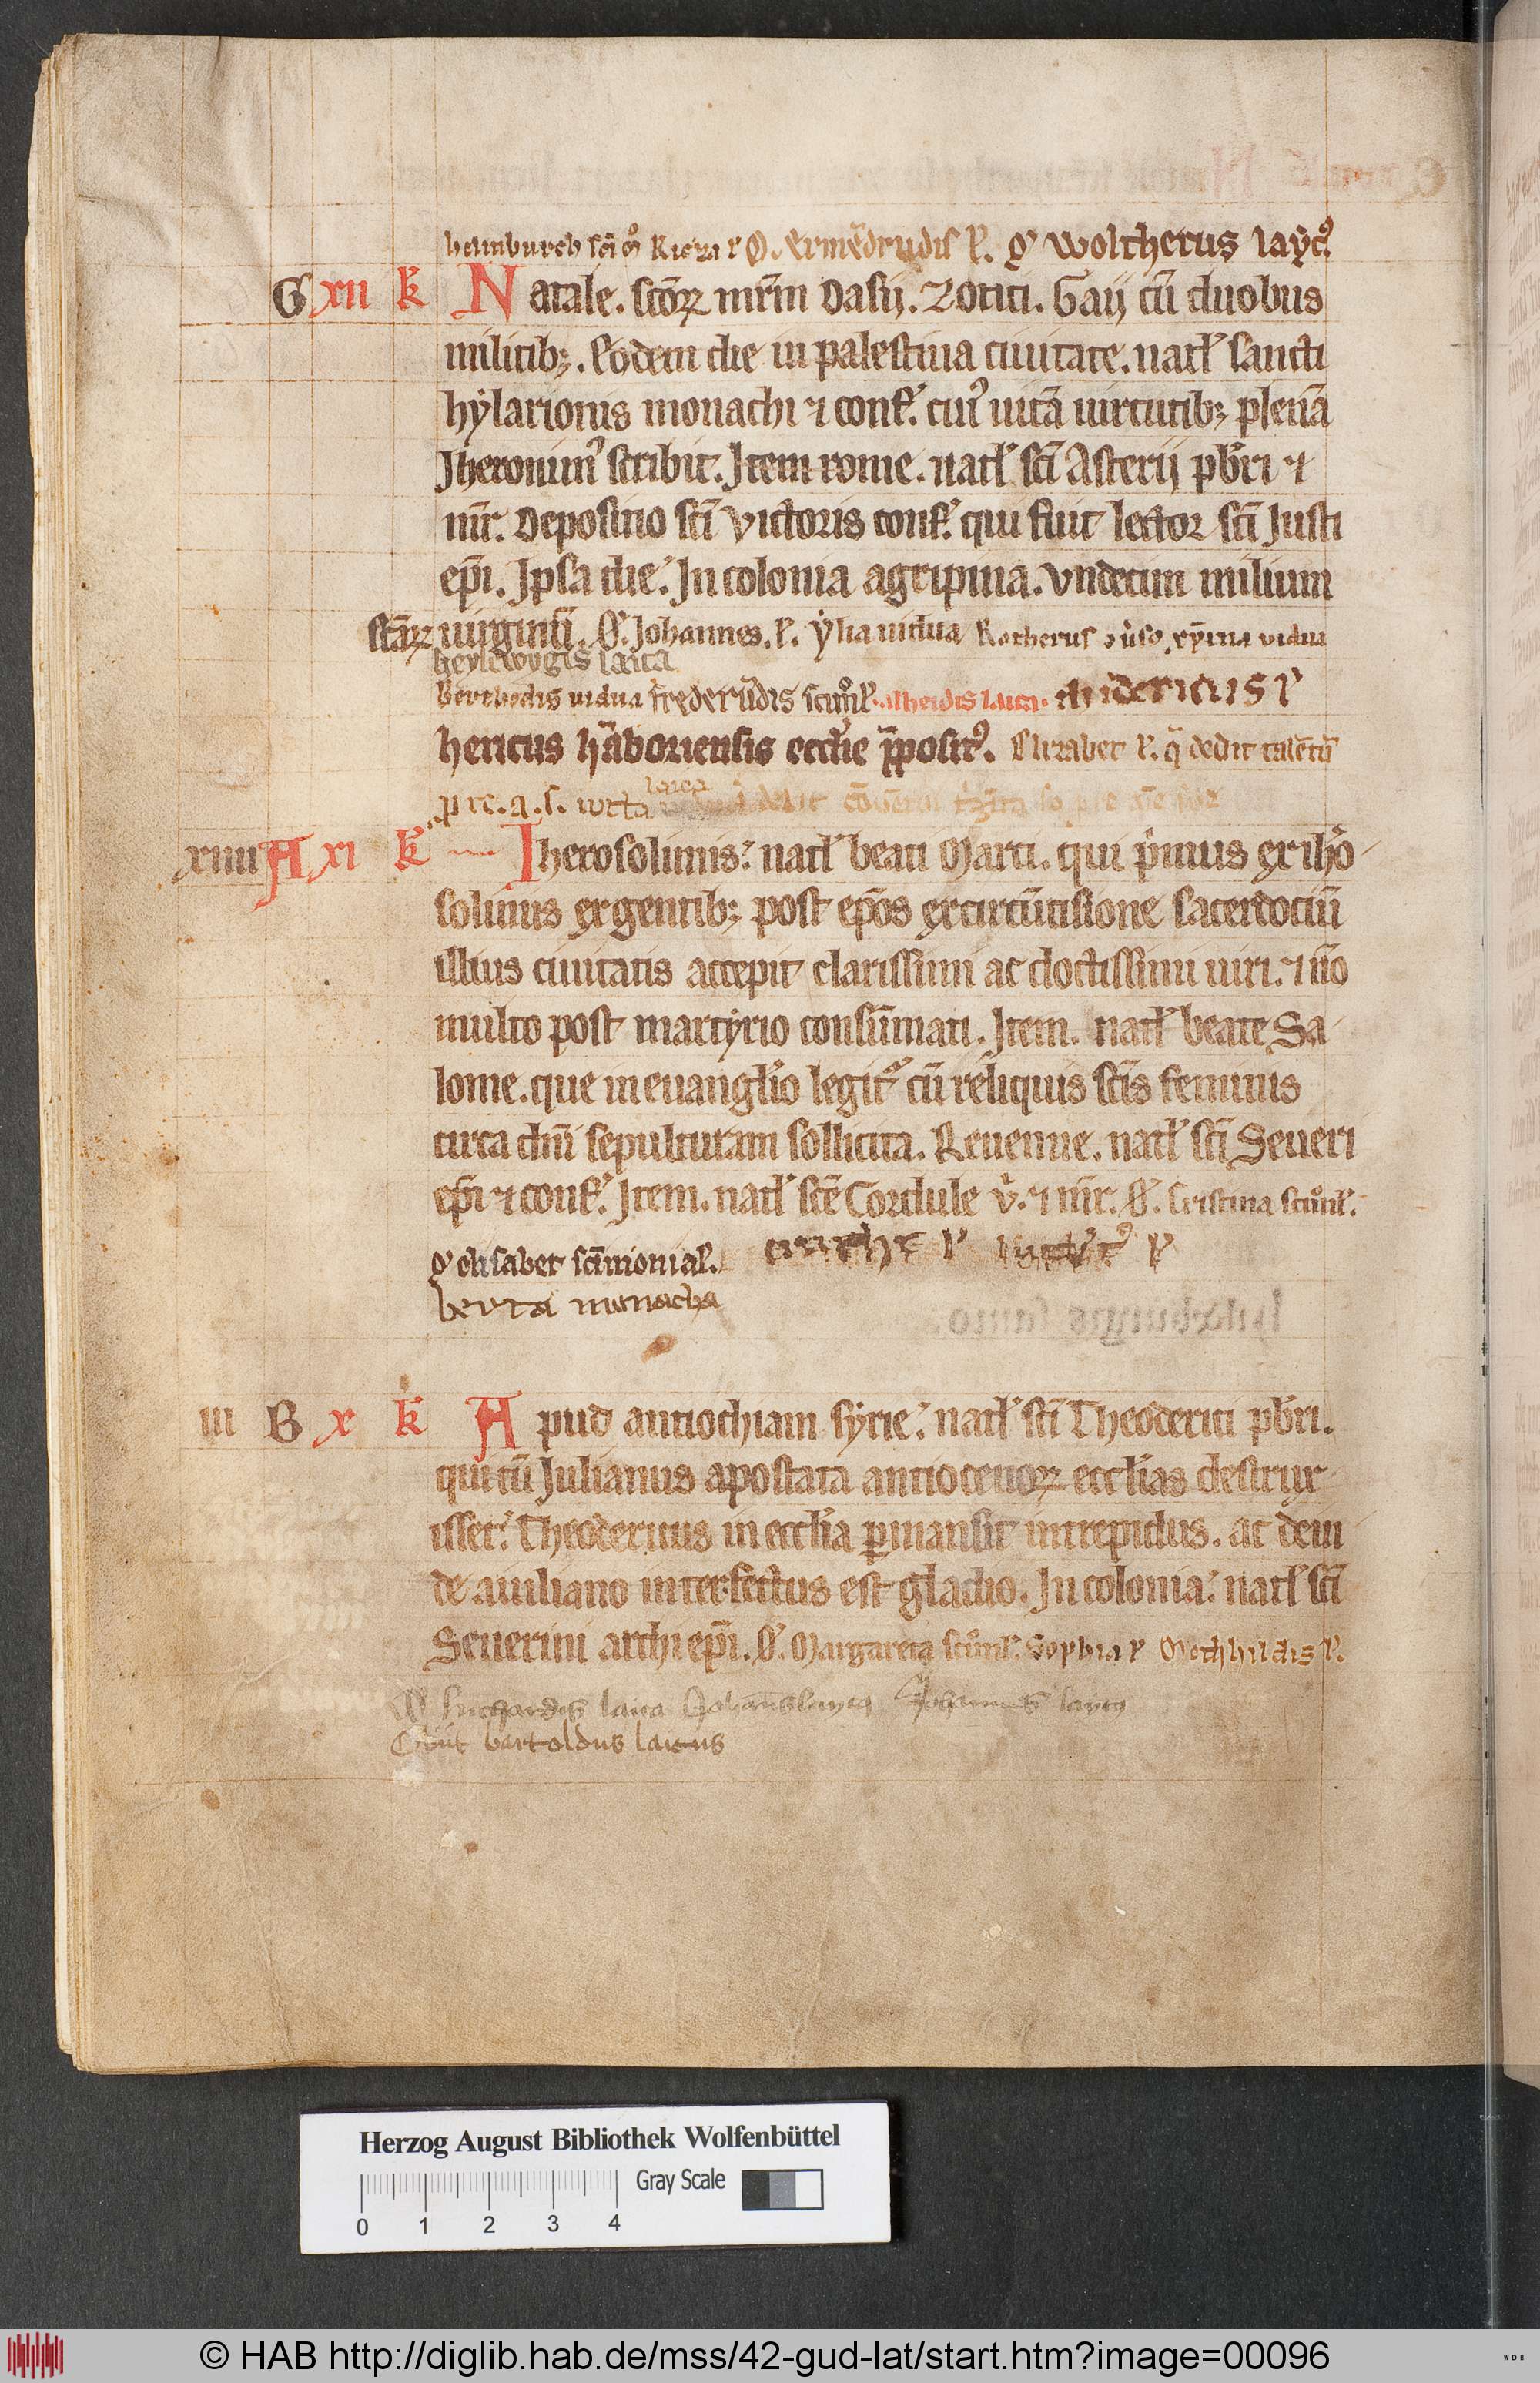 heinburch sc̄i Ricza ꝛ O. Ermēdrudis ꝑ. ꝍ woltherus layc9
G xii k̄ Natale. sc̄oꝝ mr̄m Dasij. Zotici. Gaij cū duobus
militib;. Eodem die in palestina ciuitate. natl̓ sancti
hẏlarionis monachi ⁊ conf̓. cui9 uitā uirtutib; plenā
Jheronim9 scribit. Item rome. natl̓ sc̄i Asterij pb̄ri ⁊
mr̄. Depositio sc̄i victoris conf̓. qui fuit lector sc̄i Justi
ep̄i. Ipsa die. In colonia agripina. vndecim milium
sc̄aꝝ uirginū. O̓. Johannes. ꝑ. ẏlia uidua Rotherus cȳina vidua
heylewygis laica
Berchedis uidua frederūdis alheidis laica. thidericus ꝑ
henricus hāboriensis eccl̄ie p̄posit9. Elizabet ꝑ. q̄ dedit talētū
laica dedit
xiiii A xi k̄ Iherosolimis. natl̓ beati Marci. qui p̓mus ex ih̓o
solimis ex gentib; post ep̄os ex circūcisione sacerdociū
illius ciuitatis accepit clarissimi ac doctissimi uiri. ⁊ n̄o
multo post martẏrio consūmati. Item. natl̓ beate Sa
lome. que in euangl̓io legit̓ cū reliquis sc̄is feminis
circa dn̄i sepulturam sollicita. Reuenne. natl̓ sc̄i Seueri
ep̄i ⁊ conf̓. Item. natl̓ sc̄e Cordule v̓. ⁊ mr̄. O̓. Cristina sc̄iml̓.
ꝍ elisabet sc̄imonial̓.
berta monacha
iii B x k̄ Apud antiochiam sẏrie. natl̓ sc̄i Theoderici pb̄ri.
qui cū Julianus apostata antiocenoꝝ eccl̓ias destrux
isset. Theodericus in eccl̓ia ꝑmansit intrepidus. ac dein
de a iuliano interfectus est gladio. In colonia. natl̓ sc̄i
Seuerini archiep̄i. O̓. Margareta sc̄iml̓. Sophia ꝑ Mechhildis ꝑ.
luchardis laica Johannes layca Johannes layca
Obiit bartoldus laicus
Herzog August Bibliothek Wolfenbüttel
Gray Scale
0 1 2 3 4
© HAB http://diglib.hab.de/mss/42-gud-lat/start.htm?image=00096
WDB